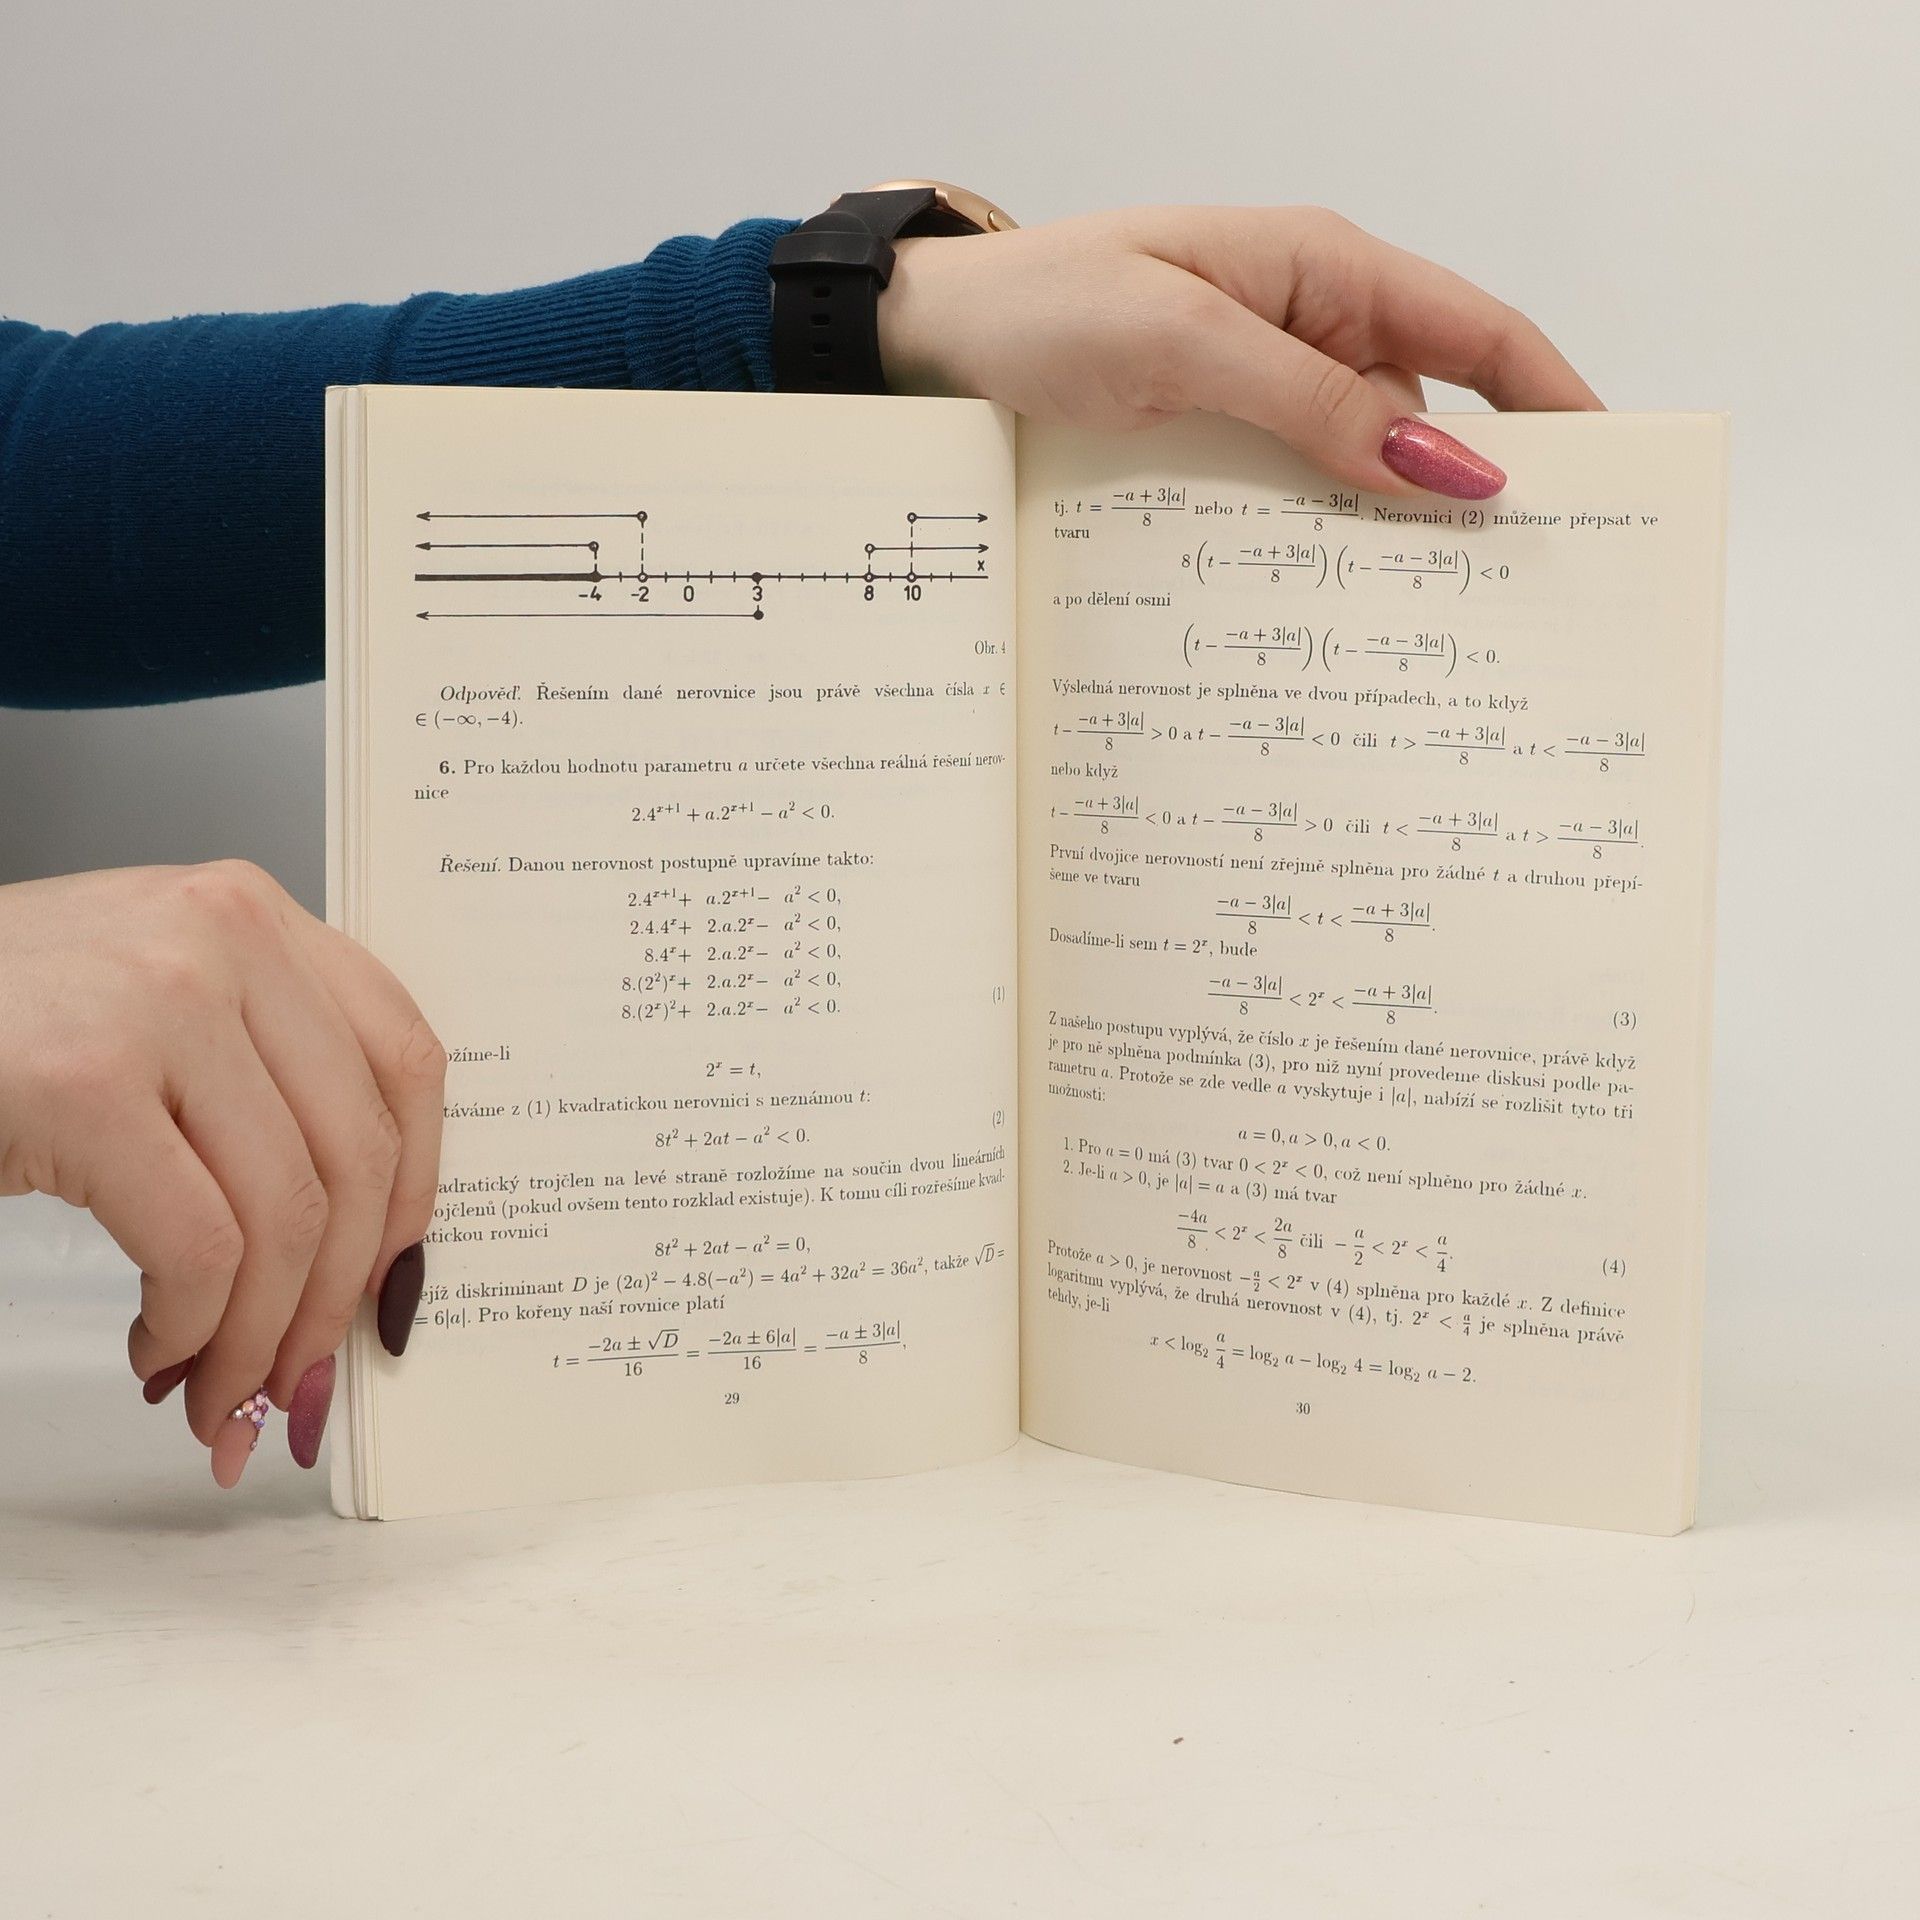 x
-4 -2 0 3 8 10
Obr. 4
Odpověď. Řešením dané nerovnice jsou právě všechna čísla x ∈
∈ (−∞, −4).
6. Pro každou hodnotu parametru a určete všechna reálná řešení nerov-
nice
2.4^{x+1} + a.2^{x+1} − a² < 0.
Řešení. Danou nerovnost postupně upravíme takto:
2.4^{x+1} + a.2^{x+1} − a² < 0,
2.4.4^x + 2.a.2^x − a² < 0,
8.4^x + 2.a.2^x − a² < 0,
8.(2²)^x + 2.a.2^x − a² < 0,
8.(2^x)² + 2.a.2^x − a² < 0. (1)
ožíme-li
2^x = t,
táváme z (1) kvadratickou nerovnici s neznámou t:
8t² + 2at − a² < 0. (2)
adratický trojčlen na levé straně rozložíme na součin dvou lineárních
ojčlenů (pokud ovšem tento rozklad existuje). K tomu cíli rozřešíme kvad-
atickou rovnici
8t² + 2at − a² = 0,
ejíž diskriminant D je (2a)² − 4.8(−a²) = 4a² + 32a² = 36a², takže √D =
= 6|a|. Pro kořeny naší rovnice platí
t = (−2a ± √D)/16 = (−2a ± 6|a|)/16 = (−a ± 3|a|)/8,
29
tj. t = (−a + 3|a|)/8 nebo t = (−a − 3|a|)/8. Nerovnici (2) můžeme přepsat ve
tvaru
8 (t − (−a + 3|a|)/8) (t − (−a − 3|a|)/8) < 0
a po dělení osmi
(t − (−a + 3|a|)/8) (t − (−a − 3|a|)/8) < 0.
Výsledná nerovnost je splněna ve dvou případech, a to když
t − (−a + 3|a|)/8 > 0 a t − (−a − 3|a|)/8 < 0 čili t > (−a + 3|a|)/8 a t < (−a − 3|a|)/8
nebo když
t − (−a + 3|a|)/8 < 0 a t − (−a − 3|a|)/8 > 0 čili t < (−a + 3|a|)/8 a t > (−a − 3|a|)/8.
První dvojice nerovností není zřejmě splněna pro žádné t a druhou přepí-
šeme ve tvaru
(−a − 3|a|)/8 < t < (−a + 3|a|)/8.
Dosadíme-li sem t = 2^x, bude
(−a − 3|a|)/8 < 2^x < (−a + 3|a|)/8. (3)
Z našeho postupu vyplývá, že číslo x je řešením dané nerovnice, právě když
je pro ně splněna podmínka (3), pro niž nyní provedeme diskusi podle pa-
rametru a. Protože se zde vedle a vyskytuje i |a|, nabízí se rozlišit tyto tři
možnosti:
a = 0, a > 0, a < 0.
1. Pro a = 0 má (3) tvar 0 < 2^x < 0, což není splněno pro žádné x.
2. Je-li a > 0, je |a| = a a (3) má tvar
−4a/8 < 2^x < 2a/8 čili −a/2 < 2^x < a/4. (4)
Protože a > 0, je nerovnost −a/2 < 2^x v (4) splněna pro každé x. Z definice
logaritmu vyplývá, že druhá nerovnost v (4), tj. 2^x < a/4 je splněna právě
tehdy, je-li
x < log₂ a/4 = log₂ a − log₂ 4 = log₂ a − 2.
30